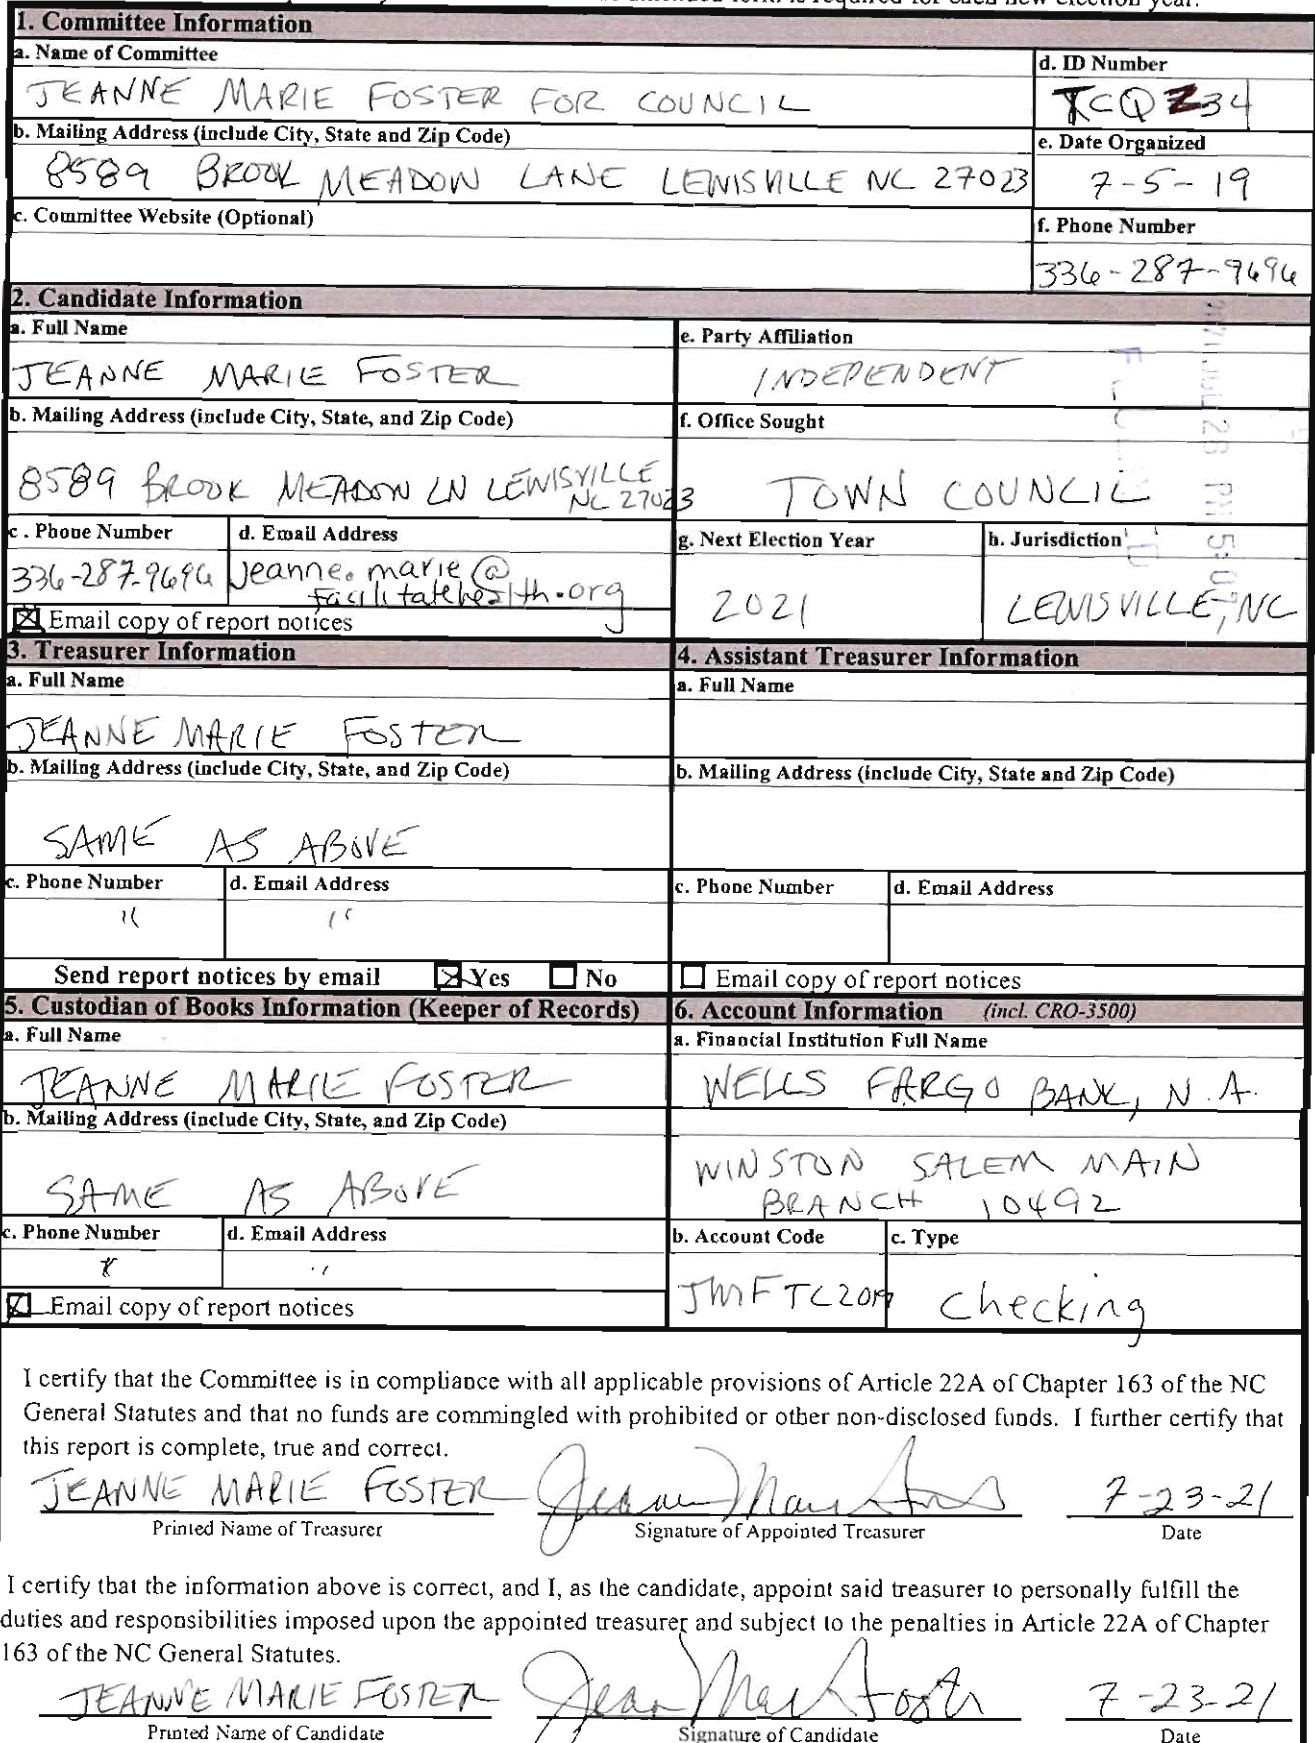 is required for each new election year.
1. Committee Information
a. Name of Committee
JEANNE MARIE FOSTER FOR COUNCIL
d. ID Number
TCQZ34
b. Mailing Address (include City, State and Zip Code)
8589 BROOK MEADOW LANE LEWISVILLE NC 27023
e. Date Organized
7-5-19
c. Committee Website (Optional)
f. Phone Number
336-287-9696
2. Candidate Information
a. Full Name
JEANNE MARIE FOSTER
e. Party Affiliation
INDEPENDENT
b. Mailing Address (include City, State, and Zip Code)
8589 BROOK MEADOW LN LEWISVILLE
NC 27023
f. Office Sought
TOWN COUNCIL
c . Phone Number
336-287-9696
d. Email Address
jeanne.marie@
facilitatehealth.org
g. Next Election Year
2021
h. Jurisdiction
LEWISVILLE, NC
Email copy of report notices
3. Treasurer Information
a. Full Name
JEANNE MARIE FOSTER
b. Mailing Address (include City, State, and Zip Code)
SAME AS ABOVE
c. Phone Number
"
d. Email Address
"
Send report notices by email Yes No
4. Assistant Treasurer Information
a. Full Name
b. Mailing Address (include City, State and Zip Code)
c. Phone Number
d. Email Address
Email copy of report notices
5. Custodian of Books Information (Keeper of Records)
a. Full Name
JEANNE MARIE FOSTER
b. Mailing Address (include City, State, and Zip Code)
SAME AS ABOVE
c. Phone Number
"
d. Email Address
"
Email copy of report notices
6. Account Information (incl. CRO-3500)
a. Financial Institution Full Name
WELLS FARGO BANK, N.A.
WINSTON SALEM MAIN
BRANCH 10492
b. Account Code
JMFTC2019
c. Type
checking
I certify that the Committee is in compliance with all applicable provisions of Article 22A of Chapter 163 of the NC
General Statutes and that no funds are commingled with prohibited or other non-disclosed funds. I further certify that
this report is complete, true and correct.
JEANNE MARIE FOSTER
Printed Name of Treasurer
Signature of Appointed Treasurer
7-23-21
Date
I certify that the information above is correct, and I, as the candidate, appoint said treasurer to personally fulfill the
duties and responsibilities imposed upon the appointed treasurer and subject to the penalties in Article 22A of Chapter
163 of the NC General Statutes.
JEANNE MARIE FOSTER
Printed Name of Candidate
Signature of Candidate
7-23-21
Date